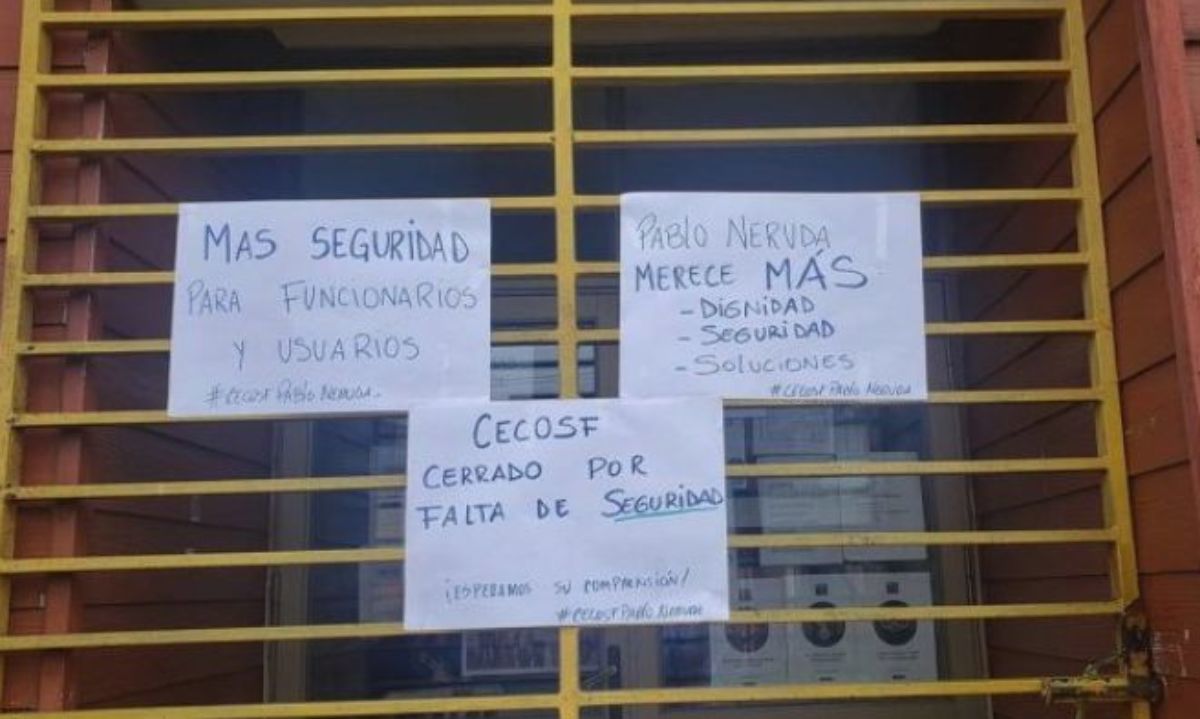 MAS SEGURIDAD
PARA FUNCIONARIOS
Y USUARIOS
#CECOSF PABLO NERUDA.
PABLO NERUDA
MERECE MÁS
- DIGNIDAD
- SEGURIDAD
- SOLUCIONES
#CECOSF PABLO NERUDA
CECOSF
CERRADO POR
FALTA DE SEGURIDAD
¡ESPERAMOS SU COMPRENSIÓN!
#CECOSF PABLO NERUDA